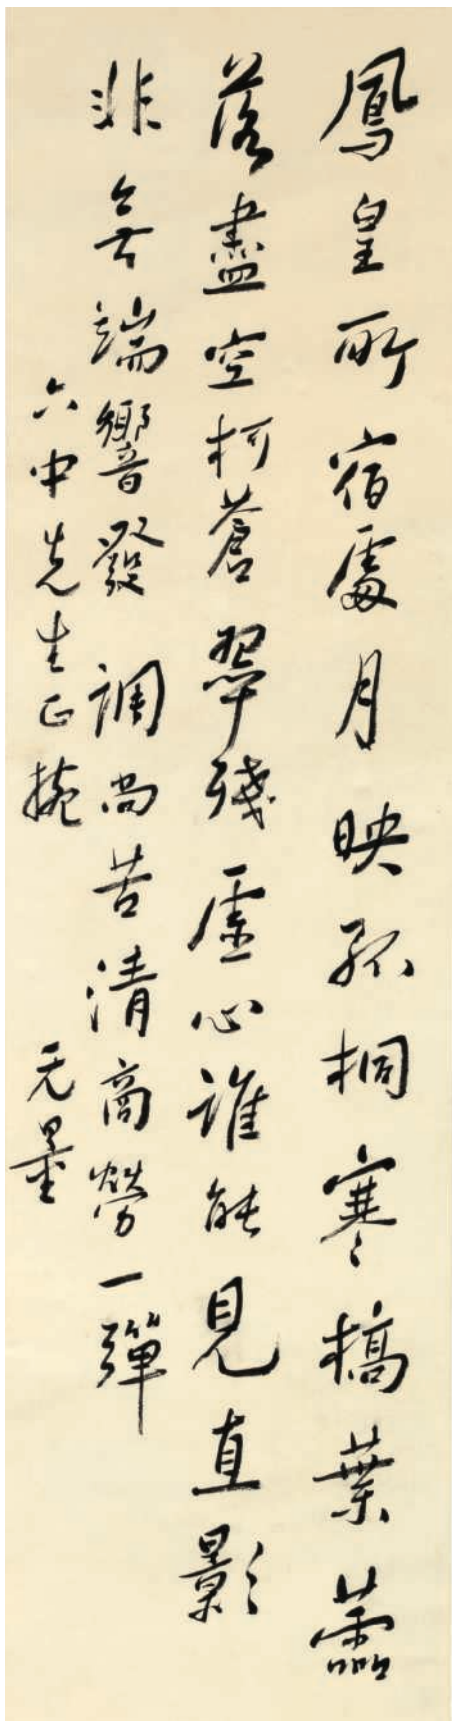 鳳皇所宿處月映孤桐寒槁葉蘦
落盡空柯蒼翠殘虛心誰能見直影
非無端響發調尚苦清商勞一彈
六中先生正捥 无量